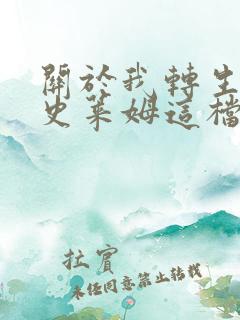 關於我轉生
史萊姆這檔
扛賓
未經同意禁止轉載